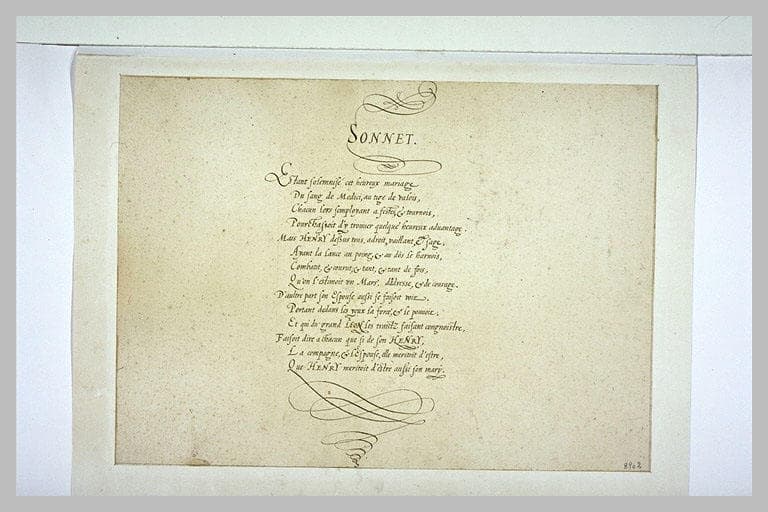 SONNET.
Estant solemnisé cet heureux mariage
Du sang de Medici, au tige de valois,
Chacun lors semployant a festes, & tournois,
Pourchassoit d'y trouver quelque heureux aduantage.
Mais HENRY dessus tous, adroit, vaillant, & sage,
Ayant la lance au poing, & au dos le harnois,
Combatit, & courut, & tant, & tant de fois,
Qu'on l'estimoit vn Mars, d'adresse, & de courage.
D'autre part son Espouse aussi se faisoit voir
Portant dedans les yeux la force, & le pouuoir,
Et qui du grand LEON les traitz faisant congnoistre,
Faisoit dire a chacun que si de son HENRY,
La compagne, & l'Espouse, elle meritoit d'estre,
Que HENRY meritoit d'estre aussi son mary.
8962